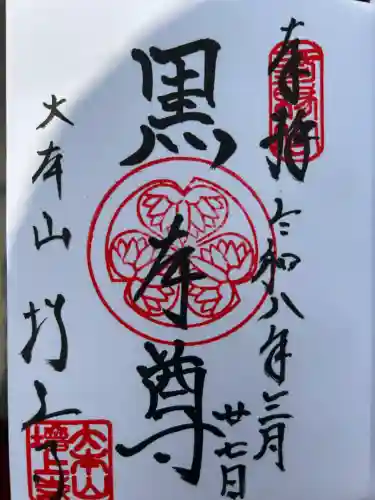 奉拝
令和八年三月
廿七日
黒本尊
大本山
増上寺
大本山
增上寺